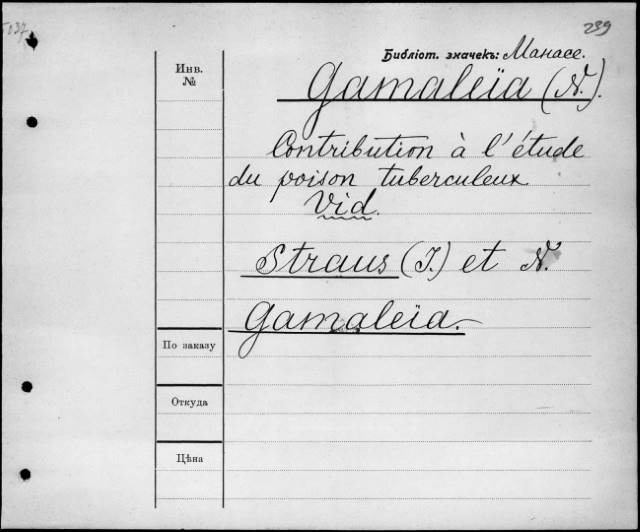 239
Библіот. значекъ: Манасе.
Инв.
№
Gamaleïa (N.).
Contribution à l'étude
du poison tuberculeux.
Vid.
Straus (I.) et N.
Gamaleïa.
По заказу
Откуда
Цѣна